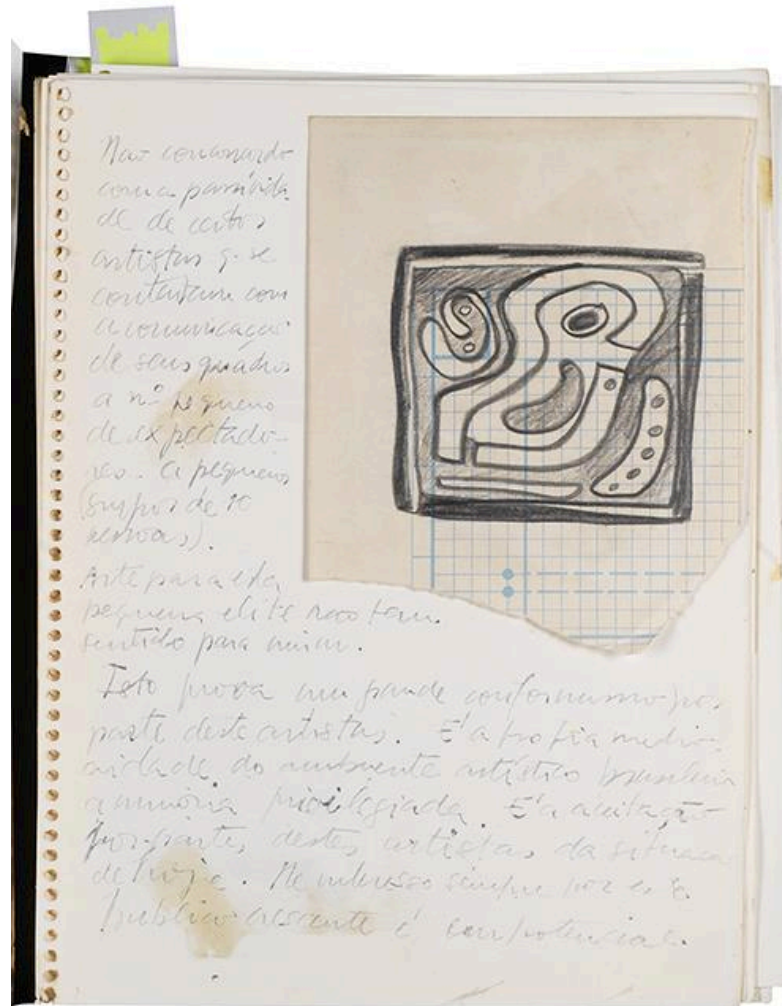 Nao concordo
com a passivida-
de de certos
artistas q. se
contentam com
a comunicação
de seus quadros
a nº pequeno
de expectado-
res. (a pequenos
grupos de 10
pessoas).
Arte para esta
pequena elite nao tem
sentido para mim.
Isto prova um grande conformismo por
parte deste artistas. E' a propria medio-
cridade do ambiente artístico brasileiro
a minoria privilegiada. E' a aceitação
por parte destes artistas da situação
de hoje. Me interesso sempre por este
publico crescente é em potencial.